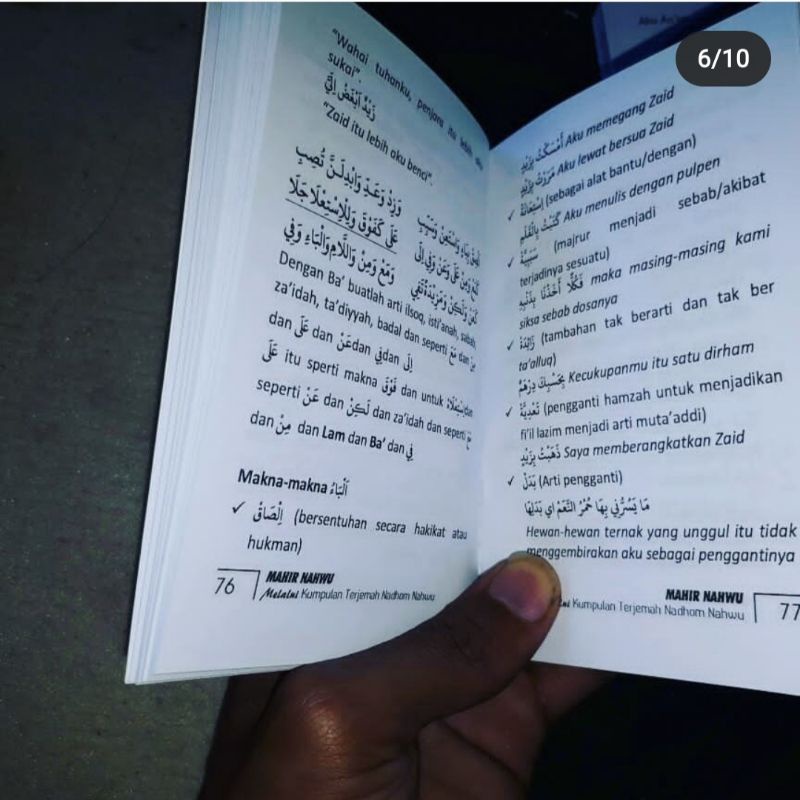 6/10
"Wahai tuhanku, penjara itu lebih aku
sukai".
زَيْدٌ اَبْغَضُ اِلَيَّ
"Zaid itu lebih aku benci".
وَزِدْ وَعَدِّ وَابْدِلَنَّ تُصِبِ
عَلَى كَفَوْقُ وَلِلْاِسْتِعْلَا جَلَا
وَمَعَ وَمِنْ وَاللَّامِ وَالْبَاءِ وَفِي
Dengan Ba' buatlah arti ilsoq, isti'anah, sabab
za'idah, ta'diyyah, badal dan seperti مَعَ dan مِنْ
dan عَلَى dan عَنْ dan فِي dan اِلَى
عَلَى itu sperti makna فَوْقَ dan untuk اِسْتِعْلَاءْ dan
seperti عَنْ dan لَكِنْ dan za'idah dan seperti مَعَ
dan مِنْ dan Lam dan Ba' dan فِي
Makna-makna اَلْبَاءُ
✓ اِلْصَاقْ (bersentuhan secara hakikat atau
hukman)
76 MAHIR NAHWU
Melalui Kumpulan Terjemah Nadhom Nahwu
أَمْسَكْتُ بِزَيْدٍ Aku memegang Zaid
مَرَرْتُ بِزَيْدٍ Aku lewat bersua Zaid
✓ اِسْتِعَانَةْ (sebagai alat bantu/dengan)
كَتَبْتُ بِالْقَلَمِ Aku menulis dengan pulpen
✓ سَبَبِيَّةْ (majrur menjadi sebab/akibat
terjadinya sesuatu)
فَكُلًّا أَخَذْنَا بِذَنْبِهِ maka masing-masing kami
siksa sebab dosanya
✓ زَائِدَةْ (tambahan tak berarti dan tak ber
ta'alluq)
بِحَسْبِكَ دِرْهَمٌ Kecukupanmu itu satu dirham
✓ تَعْدِيَّةْ (pengganti hamzah untuk menjadikan
fi'il lazim menjadi arti muta'addi)
ذَهَبْتُ بِزَيْدٍ Saya memberangkatkan Zaid
✓ بَدَلْ (Arti pengganti)
مَا يَسُرُّنِي بِهَا حُمْرُ النَّعَمْ اي بَدَلِهَا
Hewan-hewan ternak yang unggul itu tidak
menggembirakan aku sebagai penggantinya
MAHIR NAHWU 77
Kumpulan Terjemah Nadhom Nahwu